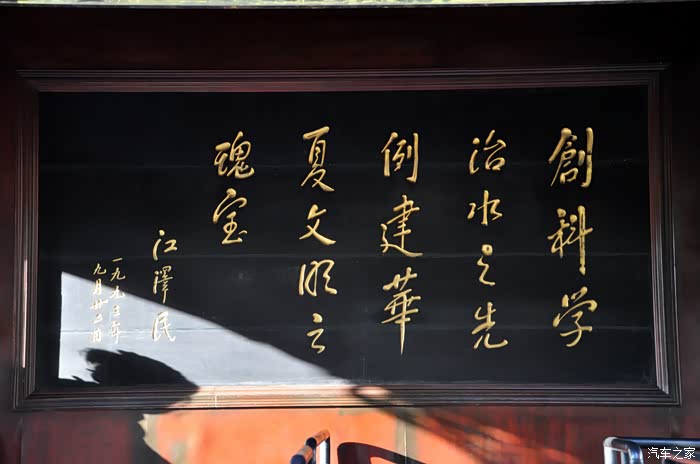 創科学
治水之先
例建華
夏文明之
瑰宝
江澤民
一九九三年
九月廿二日
汽车之家